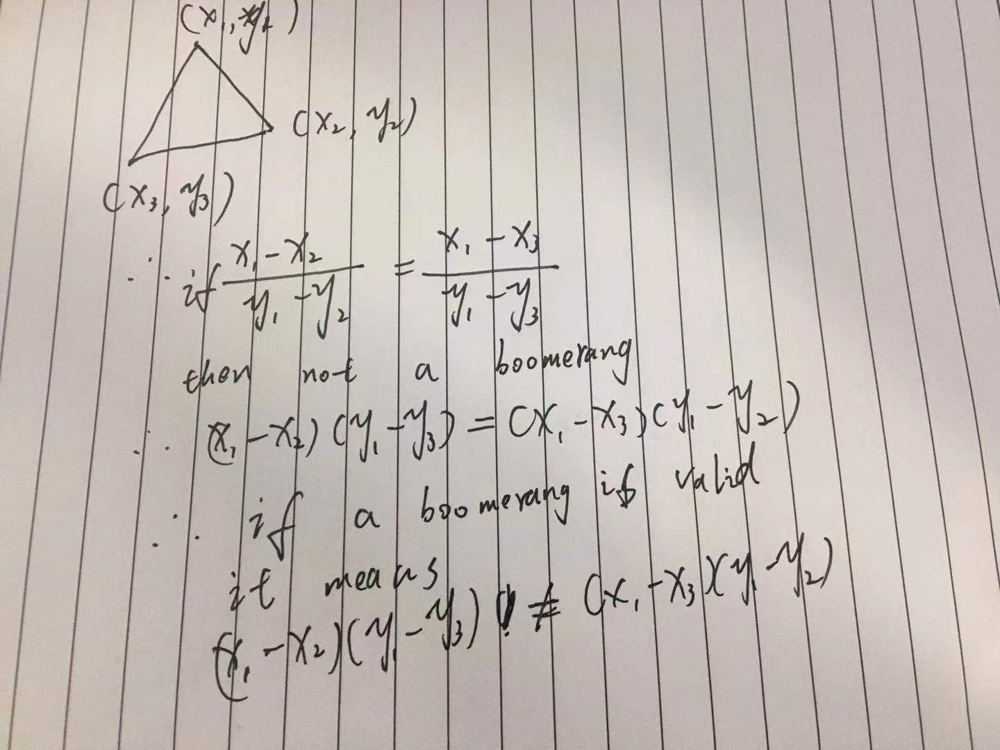 (x₁, y₁)
(x₂, y₂)
(x₃, y₃)
∴ if (x₁ - x₂)/(y₁ - y₂) = (x₁ - x₃)/(y₁ - y₃)
then not a boomerang
∴ (x₁ - x₂)(y₁ - y₃) = (x₁ - x₃)(y₁ - y₂)
∴ if a boomerang is valid
it means
(x₁ - x₂)(y₁ - y₃) ≠ (x₁ - x₃)(y₁ - y₂)